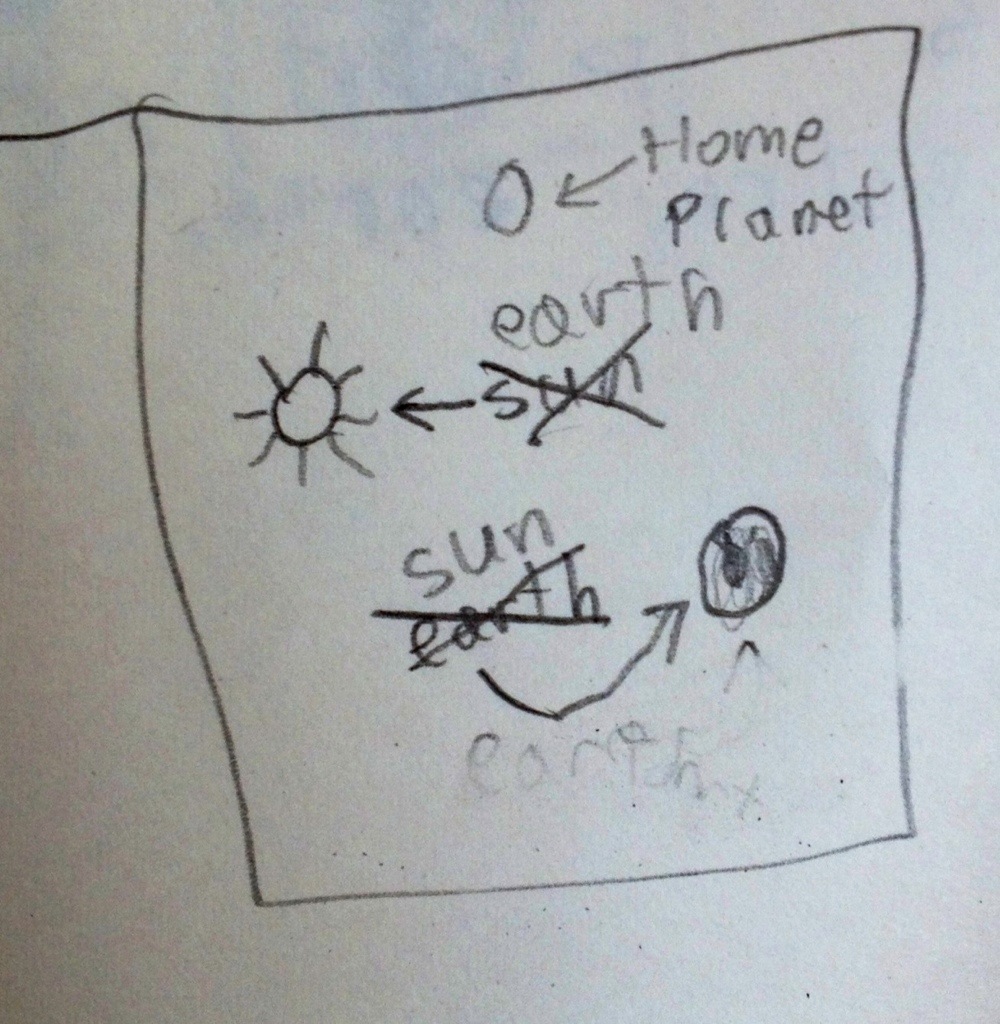 Home
Planet
earth
sun
sun
earth
earth